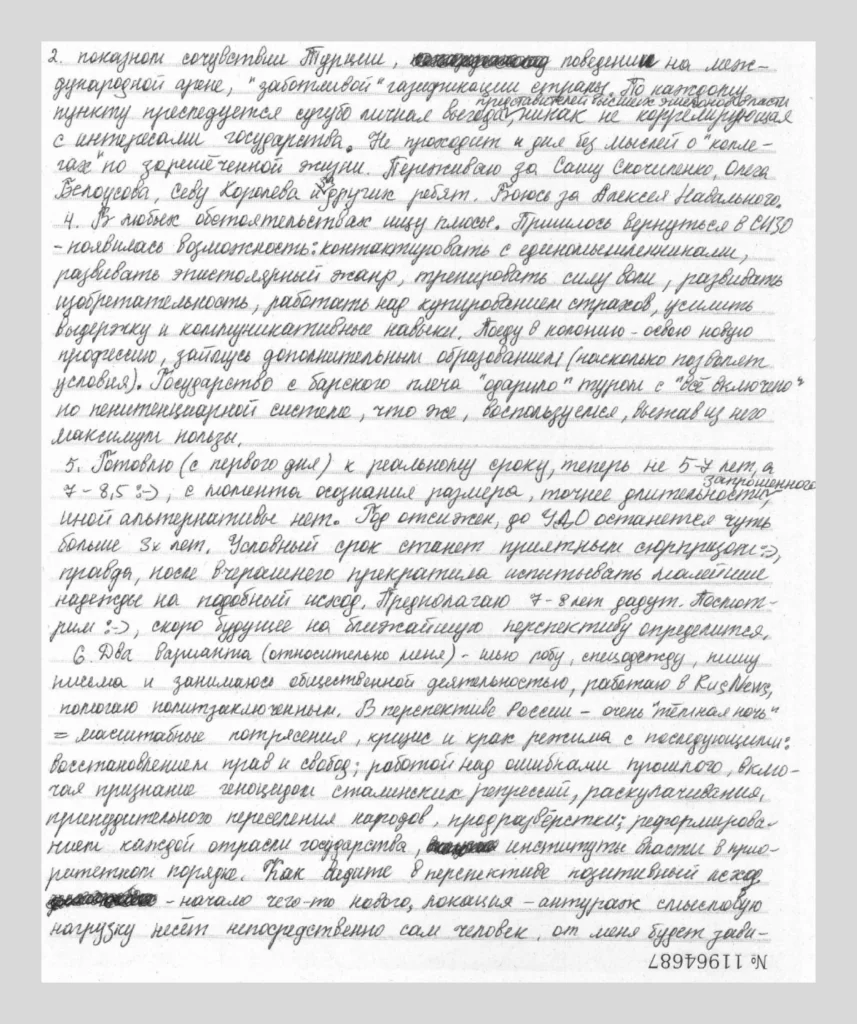 2. показном сочувствии Турции, поведении на меж-
дународной арене, "заботливой" газификации страны. По каждому
представителей высших эшелонов власти
пункту преследуется сугубо личная выгода, никак не коррелирующая
с интересами государства. Не проходит и дня без мыслей о "колле-
гах" по зарешёченной жизни. Переживаю за Сашу Скочиленко, Олега
Белоусова, Севу Королева и за других ребят. Боюсь за Алексея Навального.
4. В любых обстоятельствах ищу плюсы. Пришлось вернуться в СИЗО
- появилась возможность: контактировать с единомышленниками,
развивать эпистолярный жанр, тренировать силу воли, развивать
изобретательность, работать над купированием страхов, усилить
выдержку и коммуникативные навыки. Поеду в колонию - освою новую
профессию, займусь дополнительным образованием (насколько позволят
условия). Государство с барского плеча "одарило" туром с "всё включено"
по пенитенциарной системе, что же, воспользуемся, выжав из него
максимум пользы.
5. Готовлю (с первого дня) к реальному сроку, теперь не 5-7 лет, а
запрошенного
7-8,5 :-), с момента осознания размера, точнее длительности,
иной альтернативы нет. Год отсижен, до УДО останется чуть
больше 3х лет. Условный срок станет приятным сюрпризом :-),
правда, после вчерашнего прекратила испытывать малейшие
надежды на подобный исход. Предполагаю 7-8 лет дадут. Посмот-
рим :-), скоро будущее на ближайшую перспективу определится.
6. Два варианта (относительно меня) - шью робу, спецодежду, пишу
письма и занимаюсь общественной деятельностью, работаю в RusNews,
помогаю политзаключенным. В перспективе России - очень "тёмная ночь"
= масштабные потрясения, кризис и крах режима с последующими:
восстановлением прав и свобод; работой над ошибками прошлого, вклю-
чая признание геноцидом сталинских репрессий, раскулачивания,
принудительного переселения народов, продразвёрстки; реформирова-
нием каждой отрасли государства, институты власти в прио-
ритетном порядке. Как видите в перспективе позитивный исход
- начало чего-то нового, локация - антураж смысловую
нагрузку несёт непосредственно сам человек, от меня будет зави-
№ 11964687